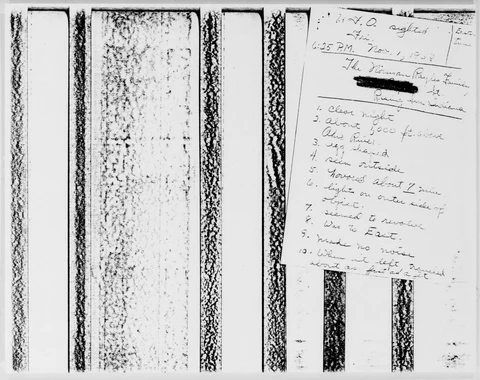 U.F.O. sighted
Fri.
6:25 P.M. Nov. 1, 1968
The Norman Family
at
Rising Sun, Indiana
1. Clear night
2. About 5000 ft. above
Ohio River
3. egg shaped
4. seen outside
5. hovered about 2 min
6. lights on outer side of
object.
7. seemed to revolve
8. Was to East.
9. Made no noise
10. When it left